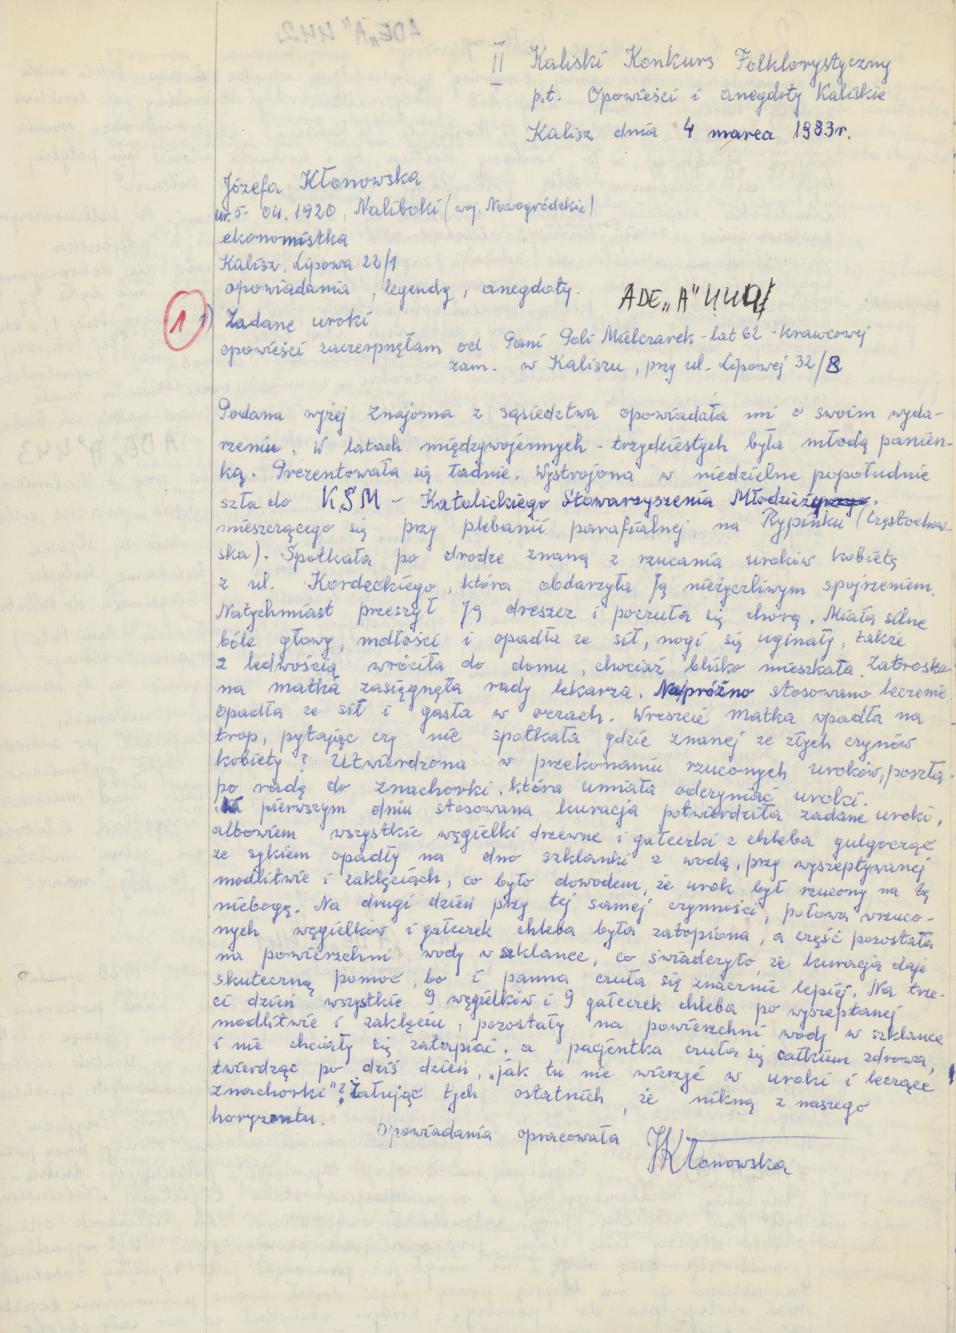 II Kaliski Konkurs Folklorystyczny
p.t. Opowieści i anegdoty Kaliskie
Kalisz dnia 4 marca 1983r.
Józefa Kłanowska
ur. 5. 04. 1920, Naliboki (woj. Nowogródzkie)
ekonomistka
Kalisz, Lipowa 22/1
opowiadania, legendy, anegdoty.
ADE „A"
1 1) Zadane uroki
opowieści zaczerpnęłam od Pani Poli Mielczarek - lat 62 - krawcowej
zam. w Kaliszu, przy ul. Lipowej 32/8
Podana wyżej znajoma z sąsiedztwa opowiadała mi o swoim wyda-
rzeniu. W latach międzywojennych - trzydziestych była młodą panien-
ką. Prezentowała się ładnie. Wystrojona w niedzielne popołudnie
szła do KSM - Katolickiego Stowarzyszenia Młodzieży
mieszczącego się przy plebanii parafialnej na Rypinku (Częstochow-
ska). Spotkała po drodze znaną z rzucania uroków kobietę
z ul. Kordeckiego, która obdarzyła Ją nieżyczliwym spojrzeniem.
Natychmiast przeszył Ją dreszcz i poczuła się chorą. Miała silne
bóle głowy, mdłości i opadła ze sił, nogi się uginały, także
z ledwością wróciła do domu, chociaż blisko mieszkała. Zatroska-
na matka zasięgnęła rady lekarza. Napróżno stosowano leczenie
opadła ze sił i gasła w oczach. Wreszcie matka wpadła na
trop, pytając czy nie spotkała gdzie znanej ze złych czynów
kobiety? Utwierdzona w przekonaniu rzuconych uroków, poszła
po radę do znachorki, która umiała odczyniać uroki.
W pierwszym dniu stosowana kuracja potwierdziła zadane uroki,
albowiem wszystkie węgielki drzewne i gałeczki z chleba gulgocząc
ze sykiem opadły na dno szklanki z wodą, przy wyszeptywanej
modlitwie i zaklęciach, co było dowodem, że urok był rzucony na tę
niebogę. Na drugi dzień przy tej samej czynności, połowa wrzuco-
nych węgielków i gałeczek chleba była zatopiona, a część pozostała
na powierzchni wody w szklance, co świadczyło, że kuracja daje
skuteczną pomoc, bo i panna czuła się znacznie lepiej. Na trze-
ci dzień wszystkie 9 węgielków i 9 gałeczek chleba po wyszeptanej
modlitwie i zaklęciu, pozostały na powierzchni wody w szklance
i nie chciały się zatapiać, a pacjentka czuła się całkiem zdrowa,
twierdząc po dziś dzień, „jak tu nie wierzyć w uroki i leczące
znachorki"? żałując tych ostatnich, że nikną z naszego
horyzontu.
Opowiadania opracowała
JKłanowska